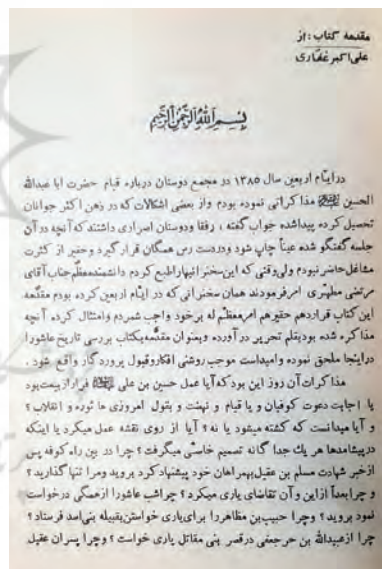 مقدمه کتاب : از
علی اکبر غفاری
بسم الله الرحمن الرحیم
در ایام اربعین سال ۱۳۸۵ در مجمع دوستان درباره قیام حضرت ابا عبدالله
الحسین علیه السلام مذاکراتی نموده بودم و از بعضی اشکالات که در ذهن اکثر جوانان
تحصیل کرده پیداشده جواب گفته ، رفقا و دوستان اصراری داشتند که آنچه در آن
جلسه گفتگو شده عیناً چاپ شود و در دست رس همگان قرار گیرد و حقیر از کثرت
مشاغل حاضر نبودم ولی وقتی که این سخنرانیها را طبع کردم دانشمند معظم جناب آقای
مرتضی مطهری امر فرمودند همان سخنرانی که در ایام اربعین کرده بودم مقدمه
این کتاب قرار دهم حقیر هم امر معظم له بر خود واجب شمردم و امتثال کرده آنچه
مذاکره شده بود بقلم تحریر در آورده و بعنوان مقدمه بکتاب بررسی تاریخ عاشورا
در اینجا ملحق نموده و امید است موجب روشنی افکار و قبول پروردگار واقع شود .
مذاکرات آن روز این بود که آیا عمل حسین بن علی علیه السلام فرار از بیعت بود
یا اجابت دعوت کوفیان و یا قیام و نهضت و بقول امروزی ها ثوره و انقلاب ؟
و آیا میدانست که کشته میشود یا نه ؟ آیا از روی نقشه عمل میکرد یا اینکه
در پیشامدها هر یك جدا گانه تصمیم خاصی میگرفت ؟ چرا در بین راه کوفه پس
از خبر شهادت مسلم بن عقیل بهمراهان خود پیشنهاد کرد بروید و مرا تنها گذارید ؟
و چرا بعداً از این و آن تقاضای یاری میکرد ؟ چرا شب عاشورا از همگی درخواست
نمود بروید ؟ و چرا حبیب بن مظاهر را برای یاری خواستن بقبیله بنی اسد فرستاد ؟
چرا از عبیدالله بن حر جعفی در قصر بنی مقاتل یاری خواست ؟ و چرا پسران عقیل